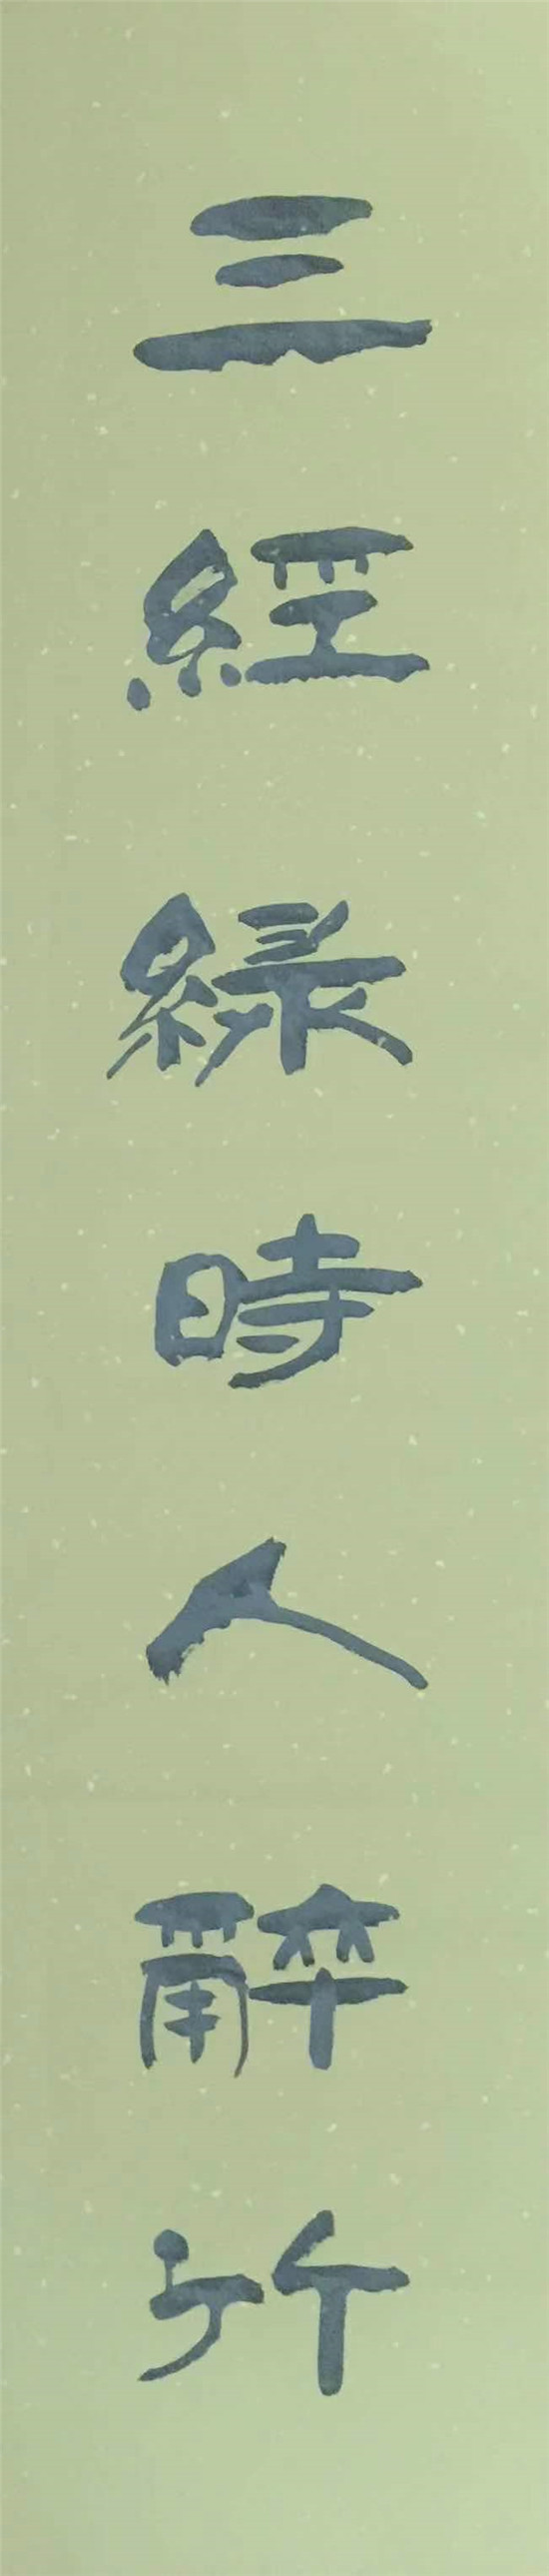 三經綠時人醉竹